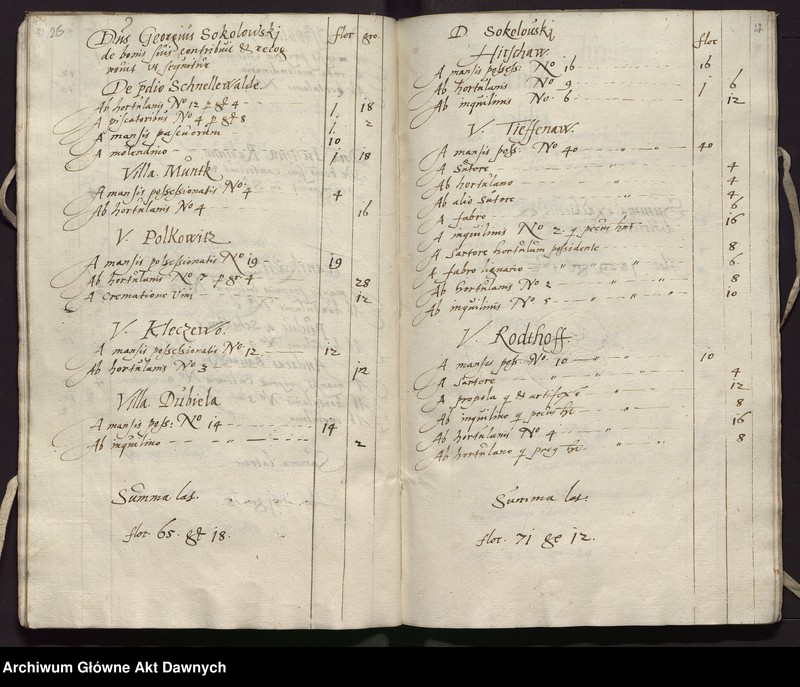 26
Dns Georgius Sokolowskj flor gro.
de bonis suis contribuit & recog
novit ut sequitur
De pdio Schnellewalde.
Ab hortulanis No 12 p g 4 - 1. 18
A piscatoribus No 4 p g 8 1. 2
A mansis pascuorum 10
A molendino 1 18
Villa Muntk
A mansis possessionatis No 4 4
Ab hortulanis No 4 16
V. Polkowitz
A mansis possessionatis No 19 19
Ab hortulanis No 7 p g 4 28
A crematione vini 12
V. Kleczewo.
A mansis possessionatis No. 12 12
Ab hortulanis No 3 12
Villa Dubiela
A mansis poss: No 14 14
Ab inquilino 2
Summa lat.
flor. 65. gr 18.
27
D Sokolouskj
Hirschaw. flor
A mansis possess: No 16 16
Ab hortulanis No 9 1 6
Ab inquilinis No. 6 12
V. Tieffenaw.
A mansis poss: No 40 40
A Sutore 4
Ab hortulano 4
Ab alio Sutore 4
A fabro 6
A inquilinis No 2 q pecus hnt 16
A Sartore hortulum possidente 8
A fabro lignario 6
Ab hortulanis No 2 8
Ab inquilinis No 5 10
V. Rodthoff.
A mansis poss: No. 10 10
A Sartore 4
A propola q & artifex e 12
Ab inquilino q pecus ht 8
Ab hortulanis No 4 16
Ab hortulano q 8
Summa lat.
flor. 71 gr 12.
Archiwum Główne Akt Dawnych